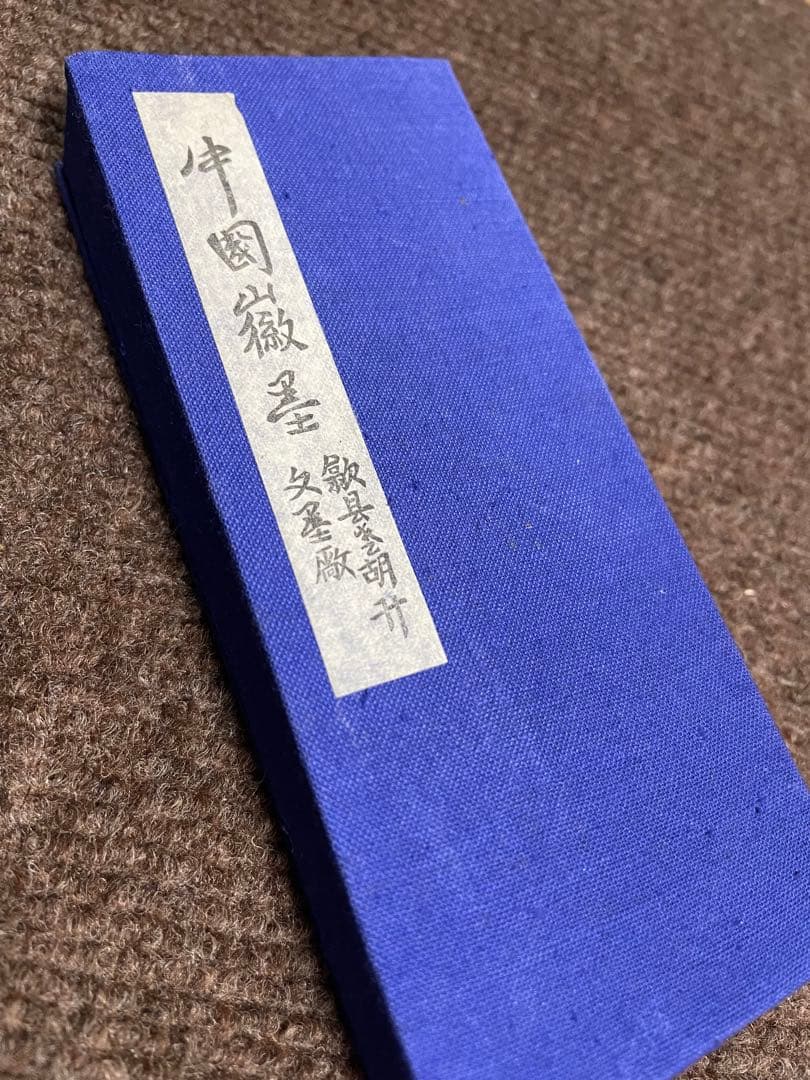 中國徽墨
歙县老胡开
文墨厰